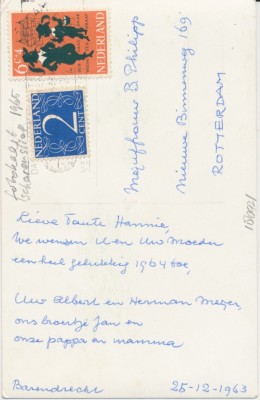 6c+4
NEDERLAND
NEDERLAND
2
CENT
1965
Mejuffrouw B. Philipp
Nieuwe Binnenweg 169
ROTTERDAM
Lieve Tante Hannie,
We wensen U en Uw Moeder
een heel gelukkig 1964 toe,
Uw Albert en Herman Meyer,
ons broertje Jan en
onze pappa en mamma
Barendrecht 25-12-1963